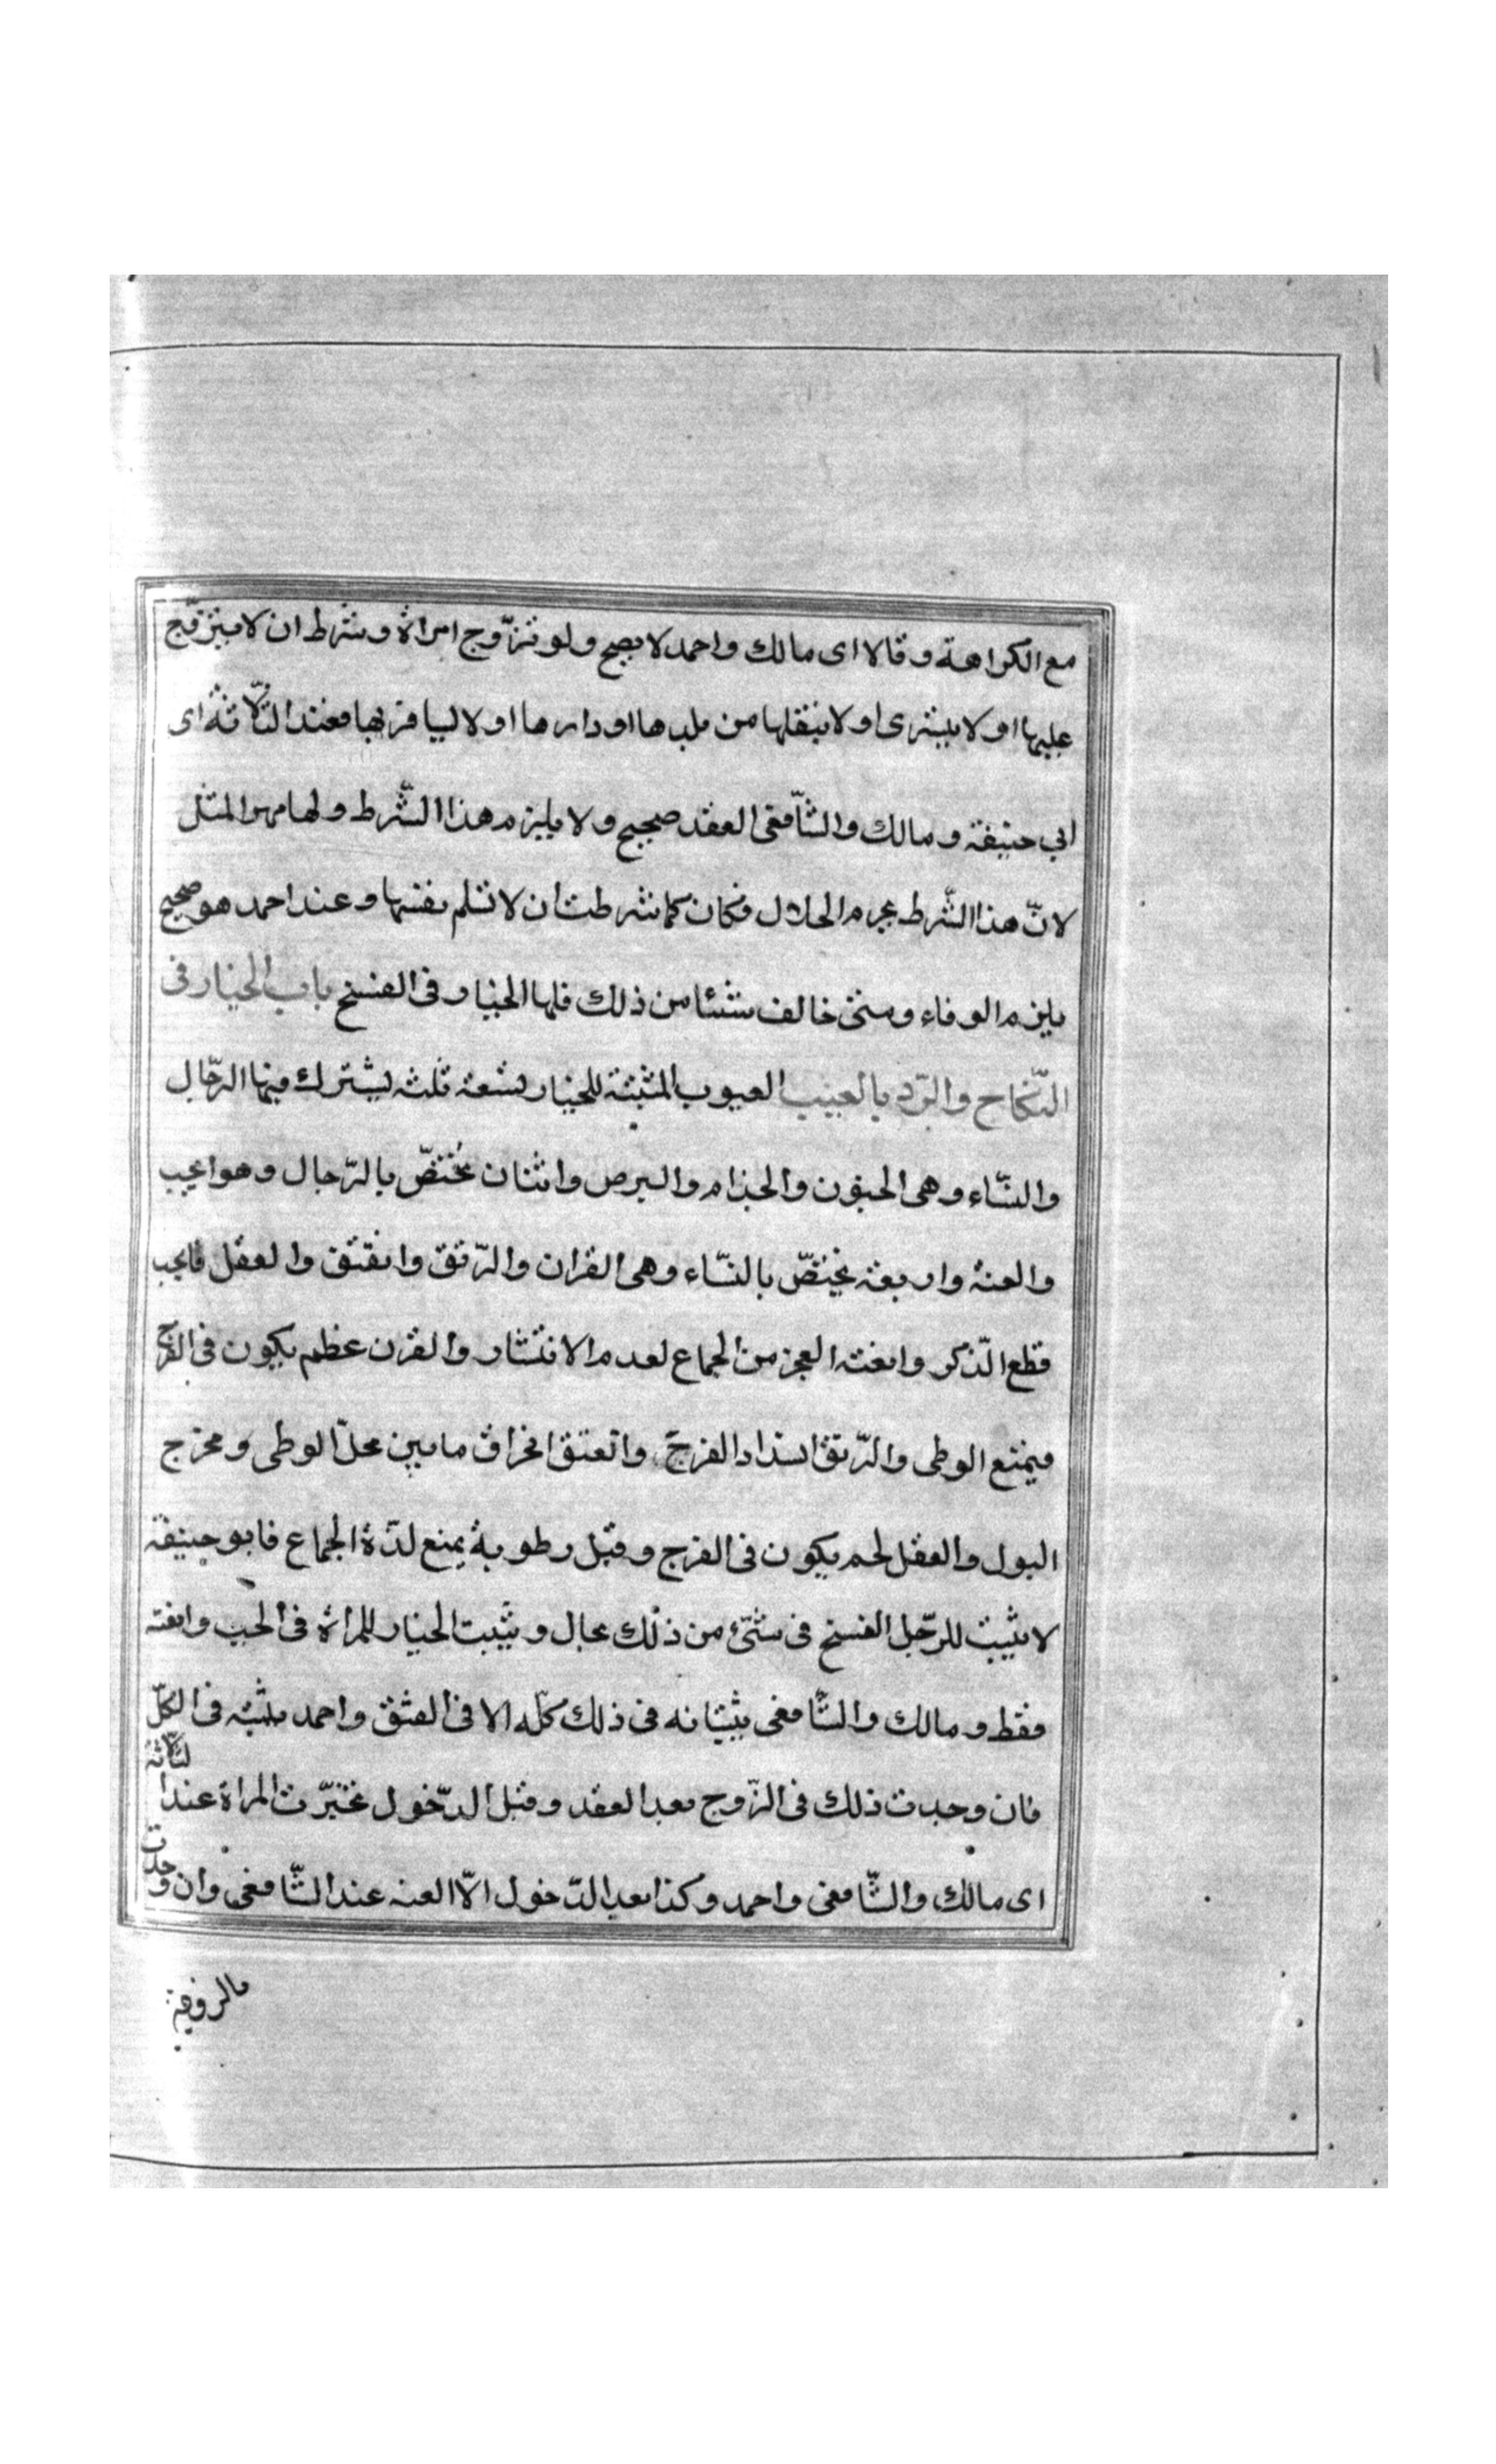 مع الكراهة وقالا اى مالك واحمد لا يصح ولو تزّوج امراة وشرط ان لا يتزوّج
عليها او لا يبشرى او لا ينقلها من بلدها او دارها او لا ليسافر بها فعند الثّلاثة اى
ابي حنيفة ومالك والشّافعى العقد صحيح ولا يلزم هذا الشّرط ولها مهر المثل
لانّ هذا الشّرط يحرم الحلال فكان كما شرطت ان لا تسلم نفسها وعند احمد هو صحيح
يلزم الوفاء ومتى خالف شيئا من ذلك فلها الخيار فى الفسخ باب الخيار فى
النّكاح والرّد بالعيب العيوب المثبتة للخيار تسعة ثلثه يشترك فيها الرّجال
والنّساء وهى الجنون والجذام والبرص واثنان يختصّ بالرّجال وهو الجب
والعنة واربعة يختصّ بالنّساء وهى القران والرّتق وانفتق والعفل فالجب
قطع الذّكر وانعنته العجز من الجماع لعدم الانتشار والقرن عظم يكون فى الفرج
فيمنع الوطى والرّتق انسداد الفرج وانعتق انخراق ما بين محلّ الوطى ومخرج
البول والعفل لحم يكون فى الفرج وقيل رطوبة يمنع لذّة الجماع فابو حنيفة
لا يثبت للرّجل الفسخ فى شئ من ذلك بحال ويثبت الخيار للمراة فى الجب وانعنه
فقط ومالك والشّافعى يثبتانه فى ذلك كلّه الا فى الفتق واحمد يثبته فى الكلّ
فان وجدت ذلك فى الزّوج بعد العقد وقبل الدّخول تخيّرت المراة عند الثّلاثة
اى مالك والشّافعى واحمد وكذا بعد الدّخول الّا العنه عند الشّافعى وان وجدت
بالزوجة